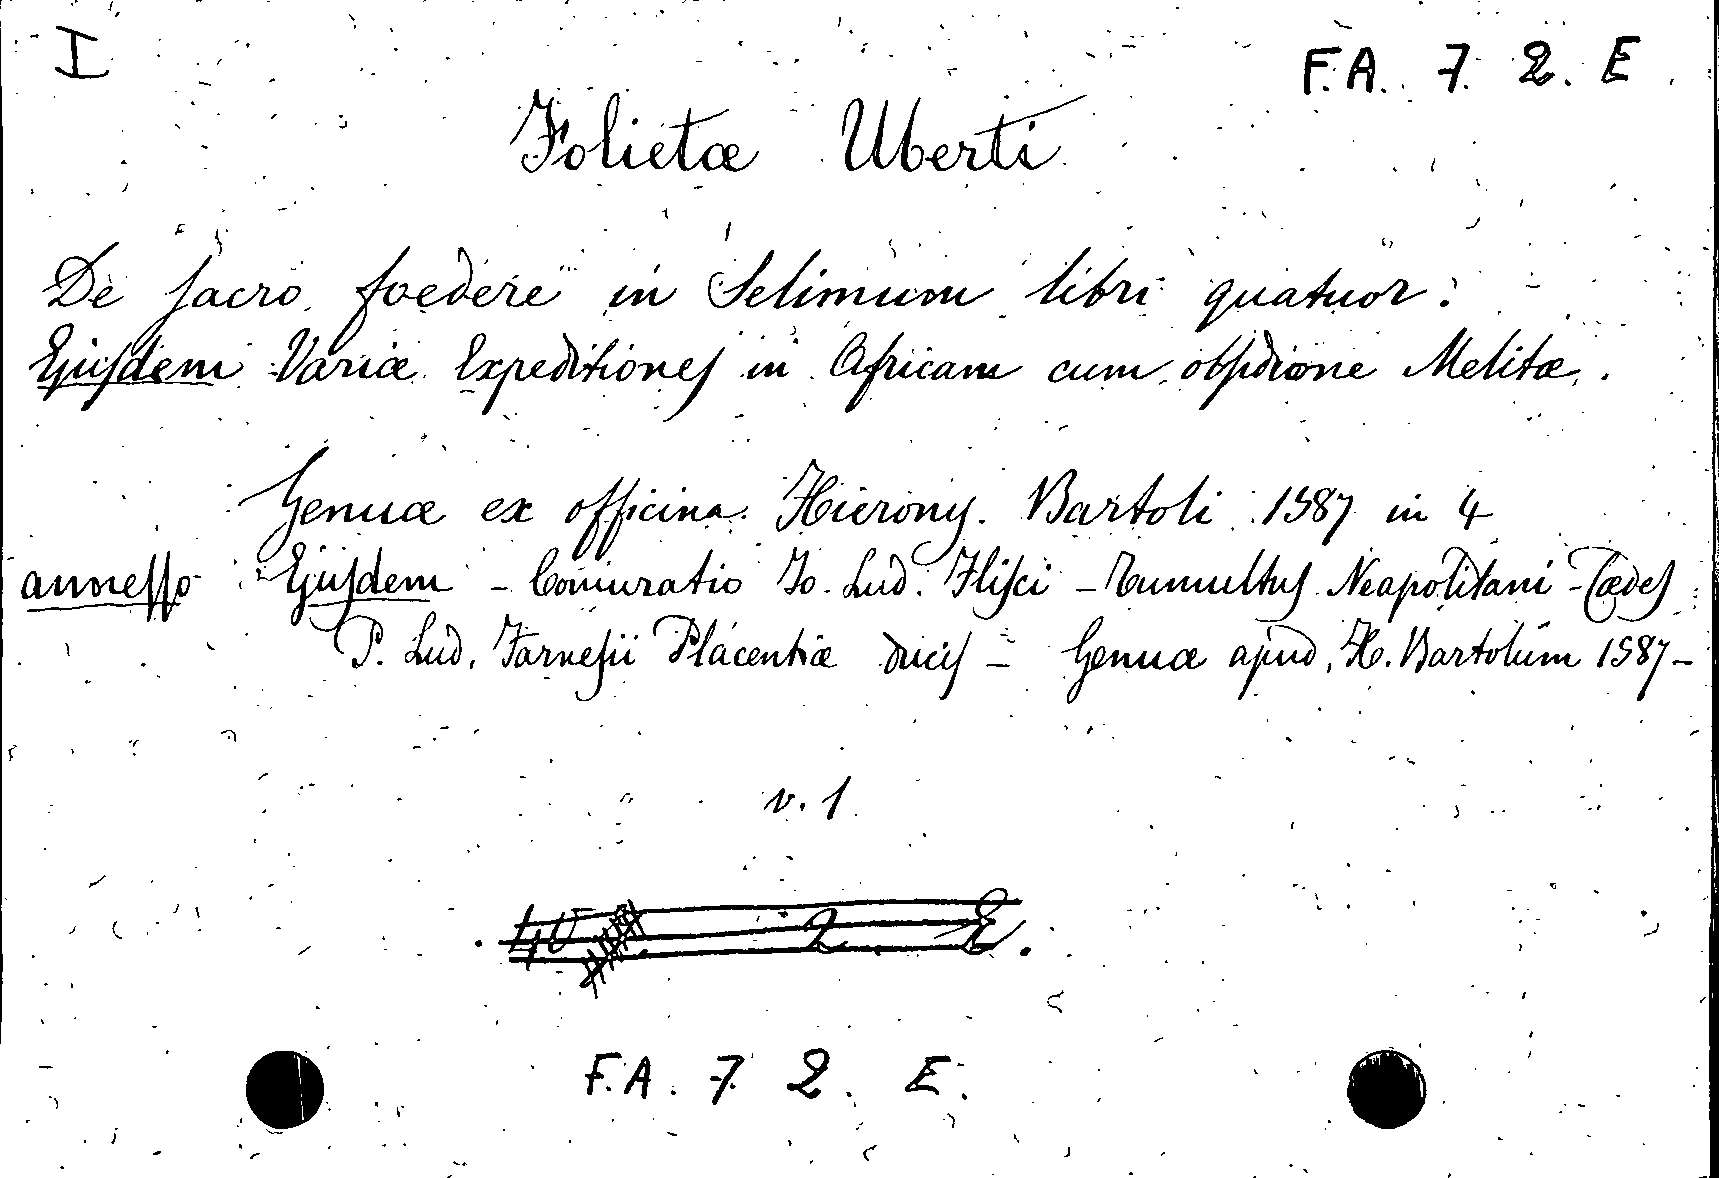 I
F.A. 7. 2. E.
Folietæ Uberti
De sacro foedere in Selimum libri quatuor.
Ejusdem Variæ Expeditiones in Africam cum obsidione Melitæ.
Genuæ ex officina Hierony. Bartoli 1587 in 4
annesso Ejusdem - Coniuratio Jo. Lud. Flisci - Tumultus Neapolitani - Cædes
P. Lud. Farnesii Placentiæ ducis - Genuæ apud H. Bartolum 1587 -
v. 1
40 2 E.
F.A. 7 2. E.